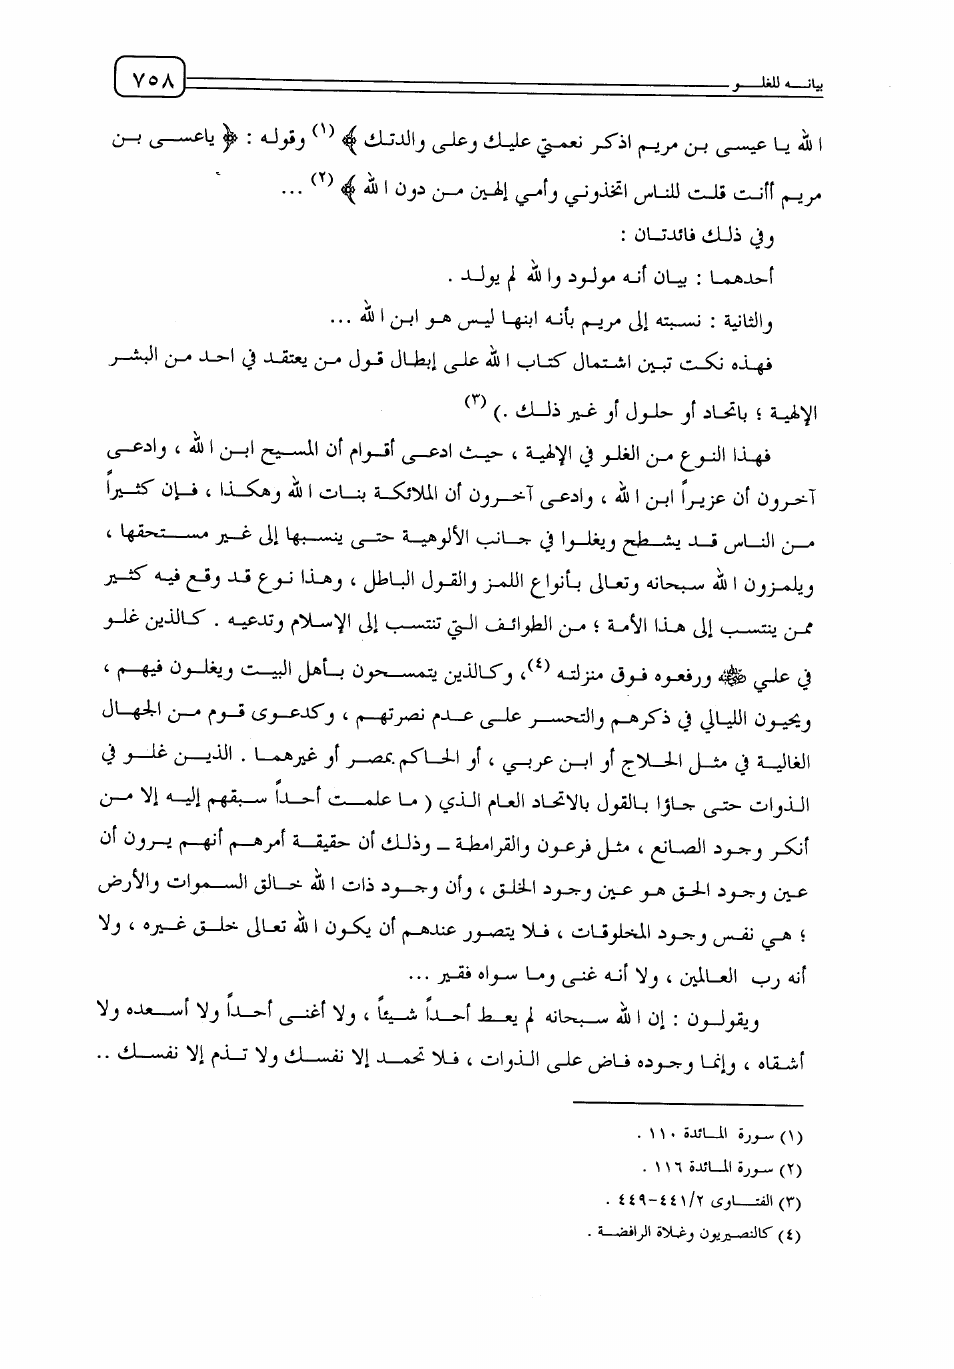 بيانه للغلو ٧٥٨
الله يا عيسى بن مريم اذكر نعمتي عليك وعلى والدتك ﴾ (١) وقوله : ﴿ ياعسى بن
مريم أأنت قلت للناس اتخذوني وأمي إلهين من دون الله ﴾ (٢) ...
وفي ذلك فائدتان :
أحدهما : بيان أنه مولود والله لم يولد .
والثانية : نسبته إلى مريم بأنه ابنها ليس هو ابن الله ...
فهذه نكت تبين اشتمال كتاب الله على إبطال قول من يعتقد في احد من البشر
الإلهية ؛ باتحاد أو حلول أو غير ذلك .) (٣)
فهذا النوع من الغلو في الإلهية ، حيث ادعى أقوام أن المسيح ابن الله ، وادعى
آخرون أن عزيراً ابن الله ، وادعى آخرون أن الملائكة بنات الله وهكذا ، فإن كثيراً
من الناس قد يشطح ويغلوا في جانب الألوهية حتى ينسبها إلى غير مستحقها ،
ويلمزون الله سبحانه وتعالى بأنواع اللمز والقول الباطل ، وهذا نوع قد وقع فيه كثير
ممن ينتسب إلى هذا الأمة ؛ من الطوائف التي تنتسب إلى الإسلام وتدعيه . كالذين غلو
في علي ﷺ ورفعوه فوق منزلته (٤)، وكالذين يتمسحون بأهل البيت ويغلون فيهم ،
ويحيون الليالي في ذكرهم والتحسر على عدم نصرتهم ، وكدعوى قوم من الجهال
الغالية في مثل الحلاج أو ابن عربي ، أو الحاكم بمصر أو غيرهما . الذين غلو في
الذوات حتى جاؤا بالقول بالاتحاد العام الذي ( ما علمت أحداً سبقهم إليه إلا من
أنكر وجود الصانع ، مثل فرعون والقرامطة ــ وذلك أن حقيقة أمرهم أنهم يرون أن
عين وجود الحق هو عين وجود الخلق ، وأن وجود ذات الله خالق السموات والأرض
؛ هي نفس وجود المخلوقات ، فلا يتصور عندهم أن يكون الله تعالى خلق غيره ، ولا
أنه رب العالمين ، ولا أنه غنى وما سواه فقير ...
ويقولون : إن الله سبحانه لم يعط أحداً شيئاً ، ولا أغنى أحداً ولا أسعده ولا
أشقاه ، وإنما وجوده فاض على الذوات ، فلا تحمد إلا نفسك ولا تذم إلا نفسك ..
(١) سورة المائدة ١١٠ .
(٢) سورة المائدة ١١٦ .
(٣) الفتاوى ٤٤١/٢–٤٤٩ .
(٤) كالنصيريون وغلاة الرافضة .